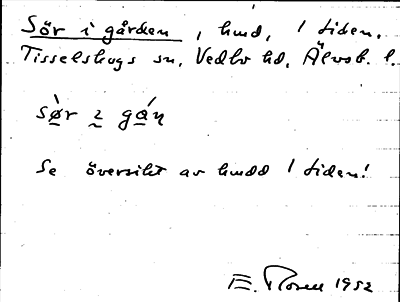 Sör i gården, hmd, 1 tiden.
Tisselskogs sn, Vedbo hd, Älvsb. l.
sø̀r ɿ gáɳ
Se översikt av hmdd 1 tiden!
E. Rosell 1952